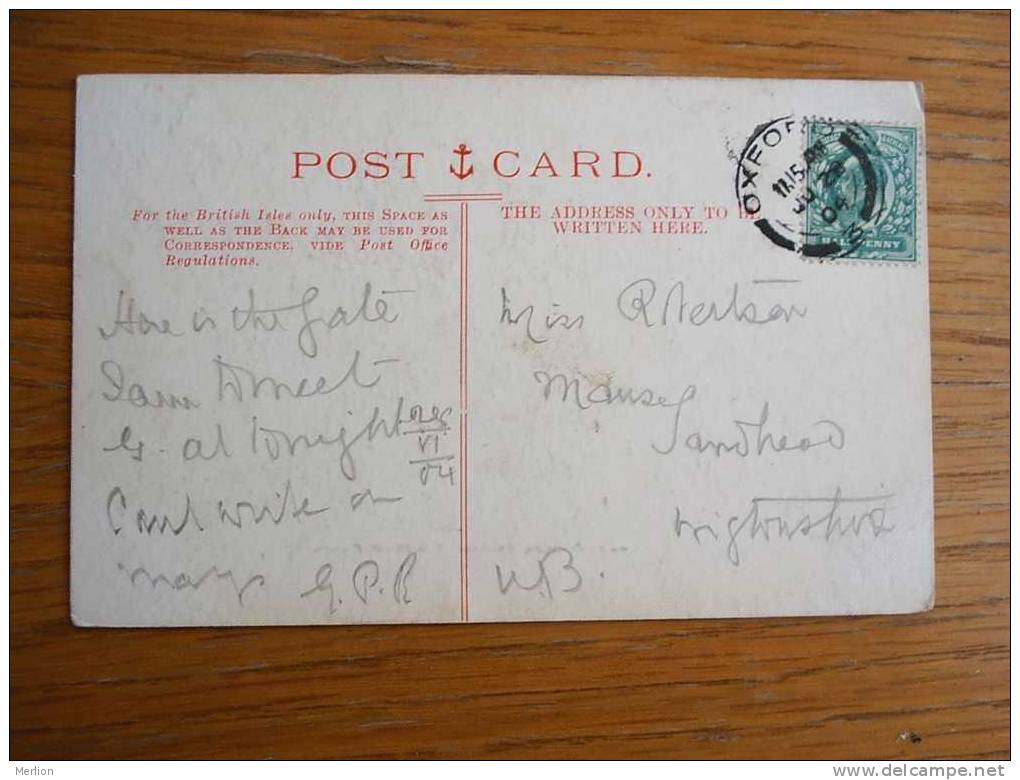 POST CARD.
For the British Isles only, THIS SPACE AS
WELL AS THE BACK MAY BE USED FOR
CORRESPONDENCE, VIDE Post Office
Regulations.
THE ADDRESS ONLY TO BE
WRITTEN HERE.
OXFORD
11.15 PM
04
HALFPENNY
Here is the gate
I am to meet
G. at tonight
VI
04
Cant write on
G.P.R
Miss Robertson
Manse
Sandhead
Wigtonshire
N.B.
Merlion
http://www.delcampe.net